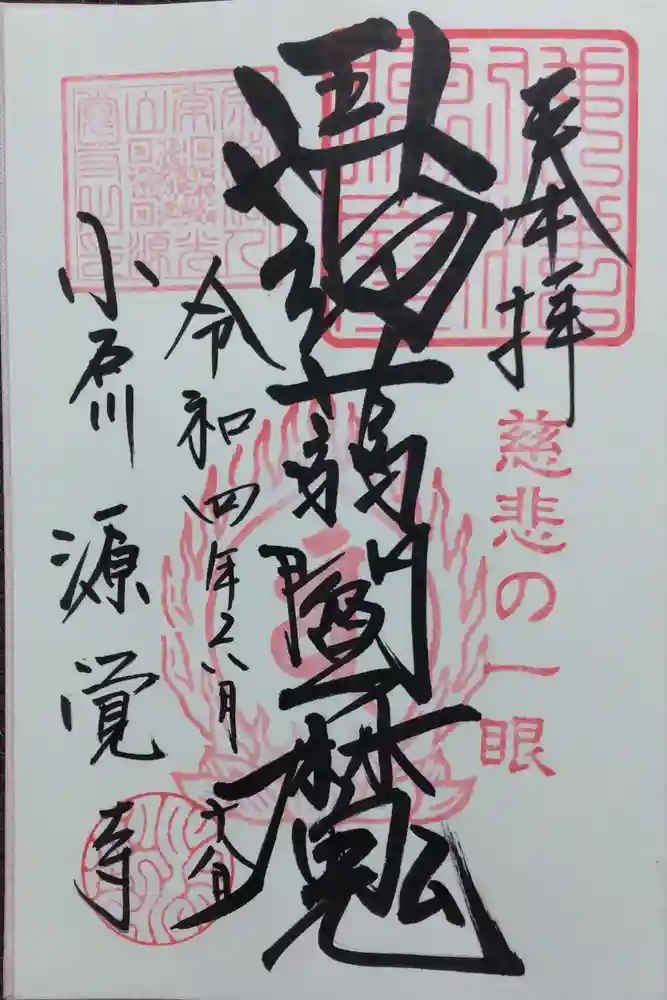 奉拝
慈悲の一眼
蒟蒻閻魔
令和四年六月十八日
小石川 源覚寺